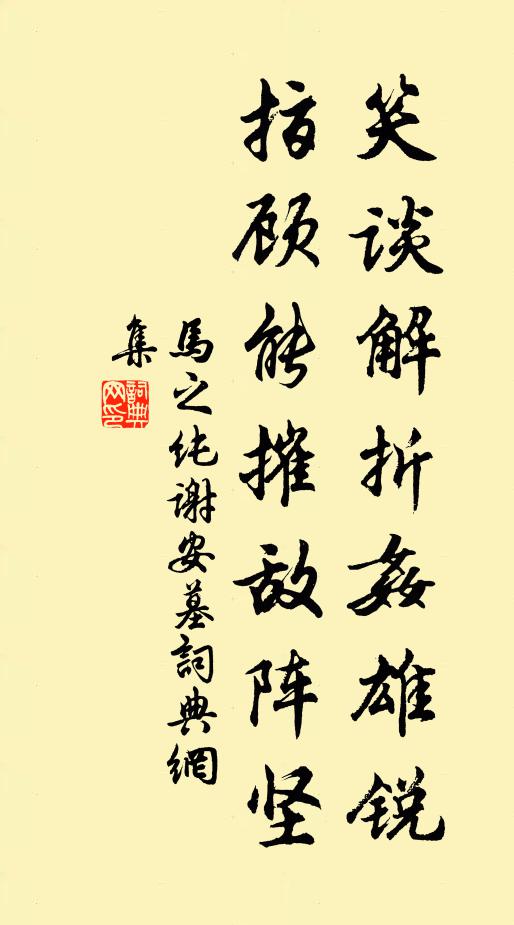 笑谈解折姦雄锐
指顾能摧敌阵坚
馬之纯谢安墓詞典網
集
詞典
网印